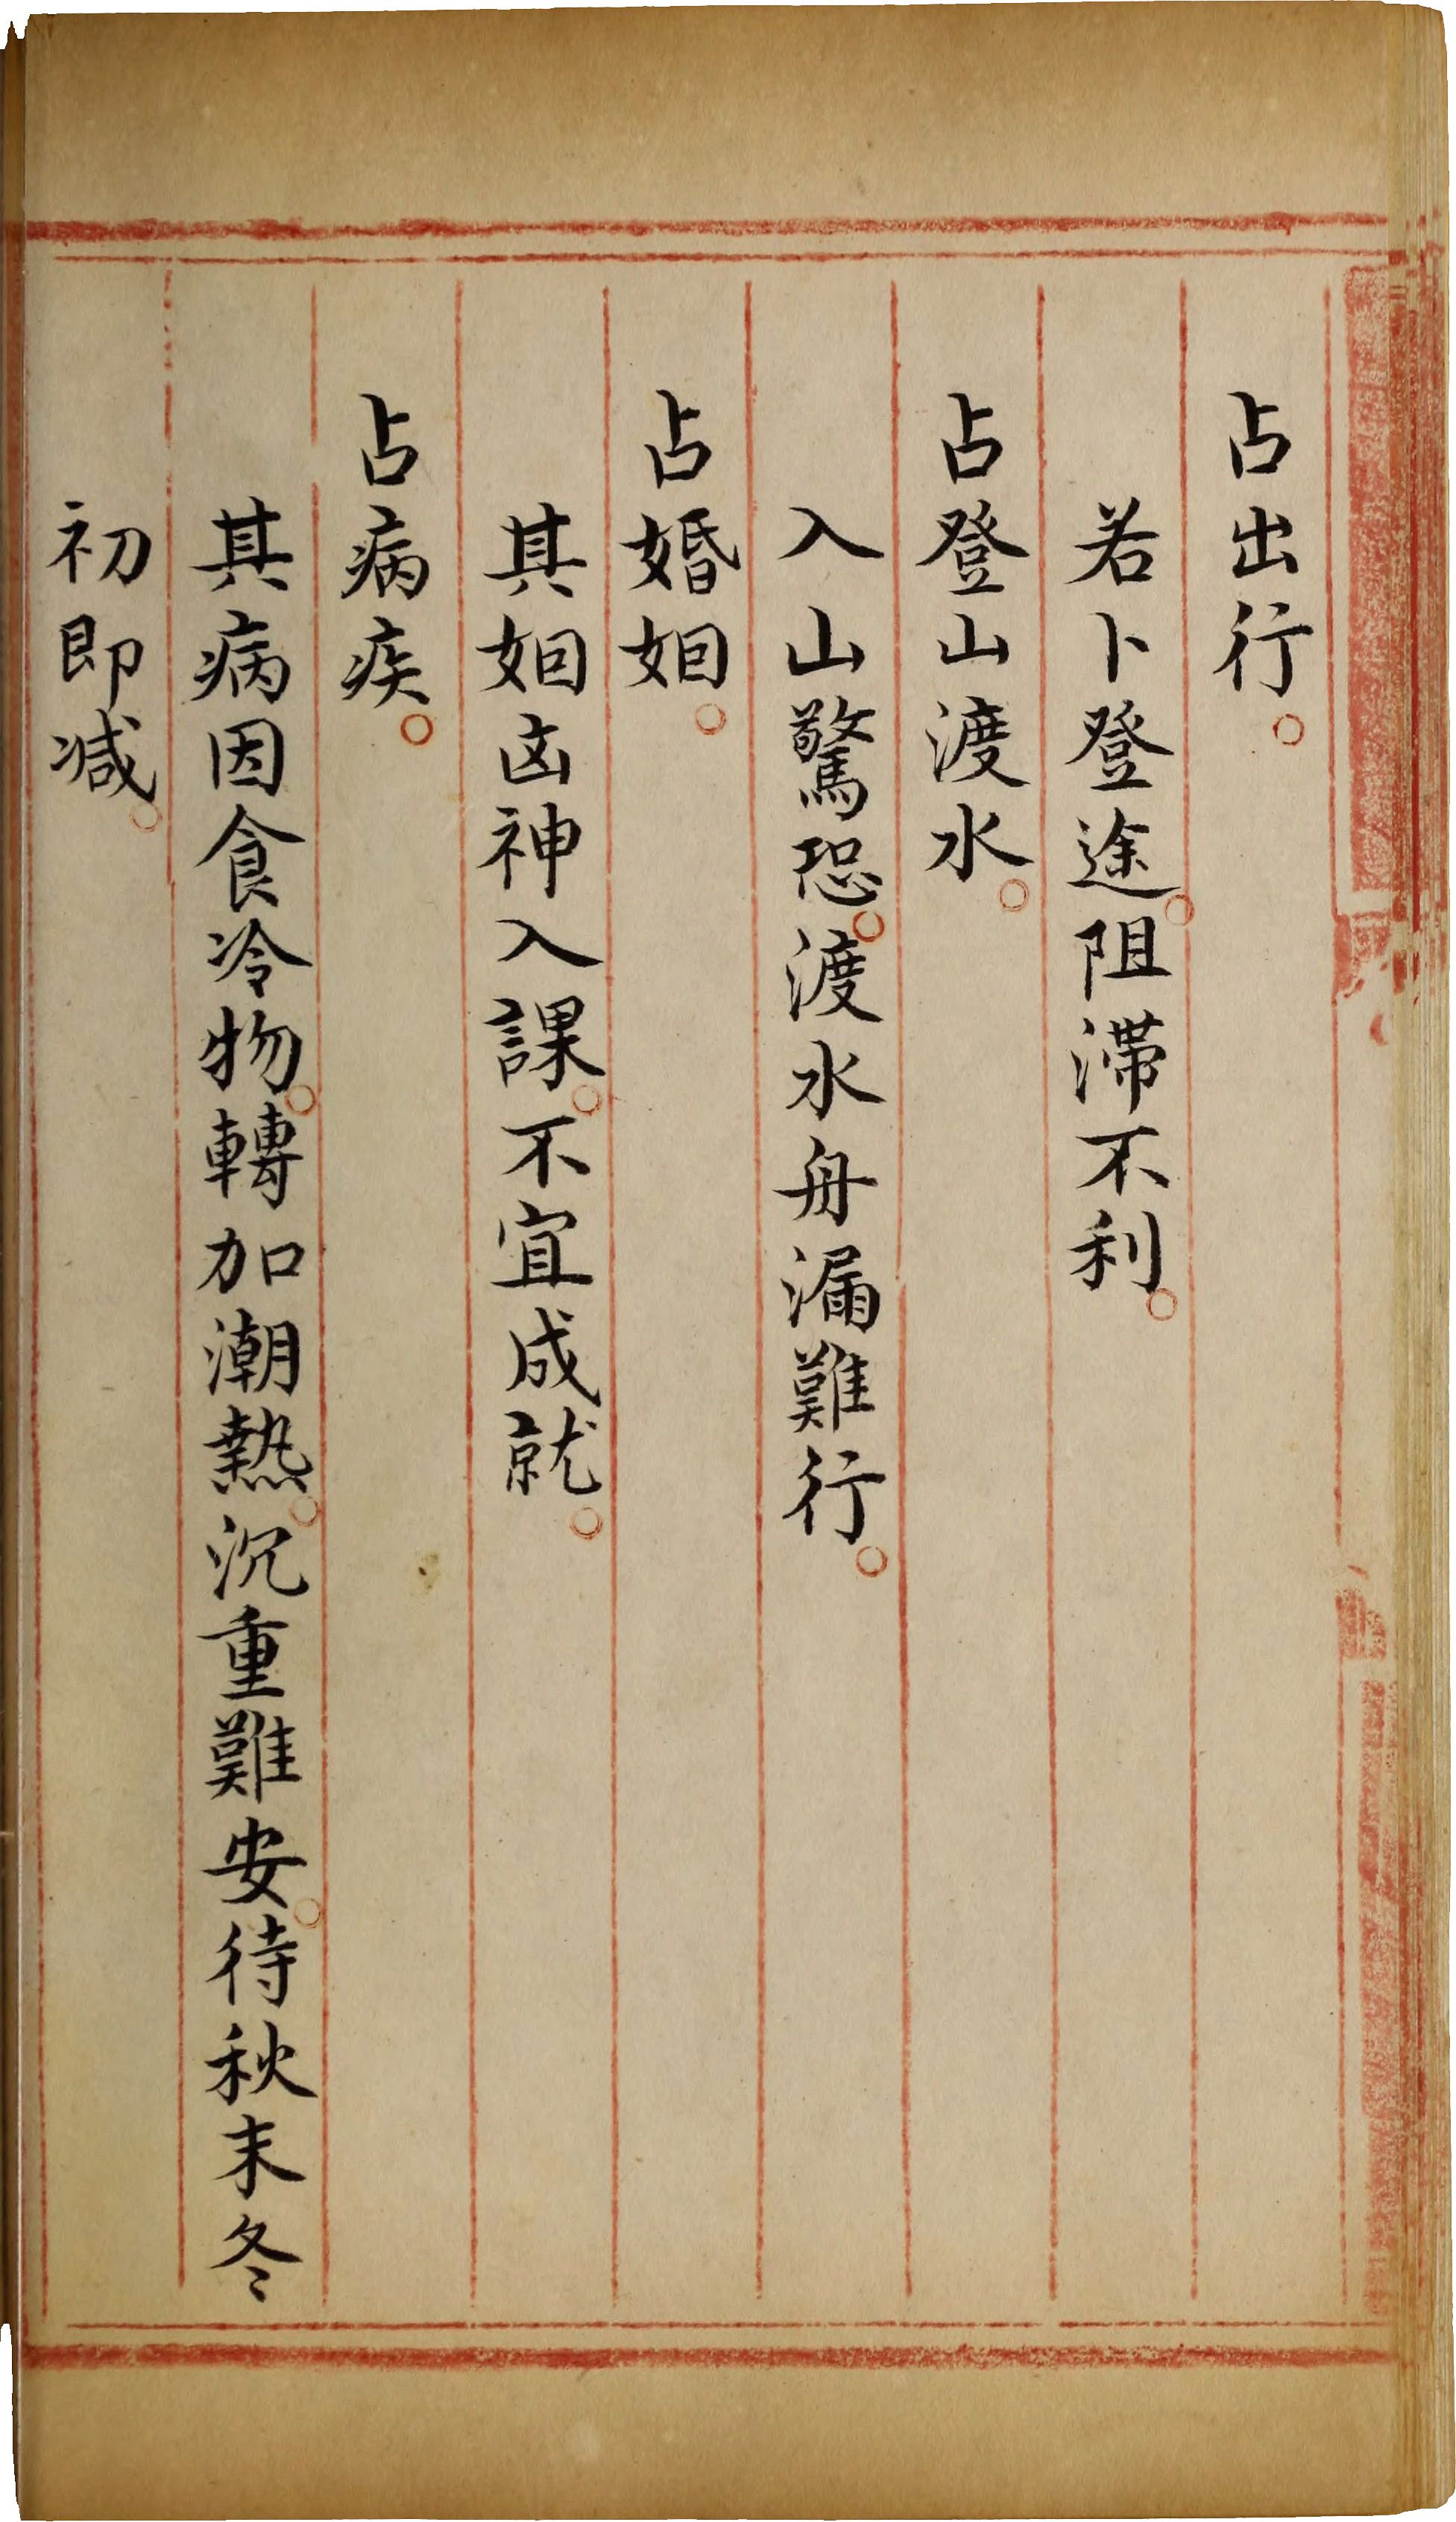 占出行。
若卜登途。阻滯不利。
占登山渡水。
入山驚恐。渡水舟漏難行。
占婚姻。
其姻凶神入課。不宜成就。
占病疾。
其病因食冷物。轉加潮熱。沉重難安。待秋末冬
初即減。